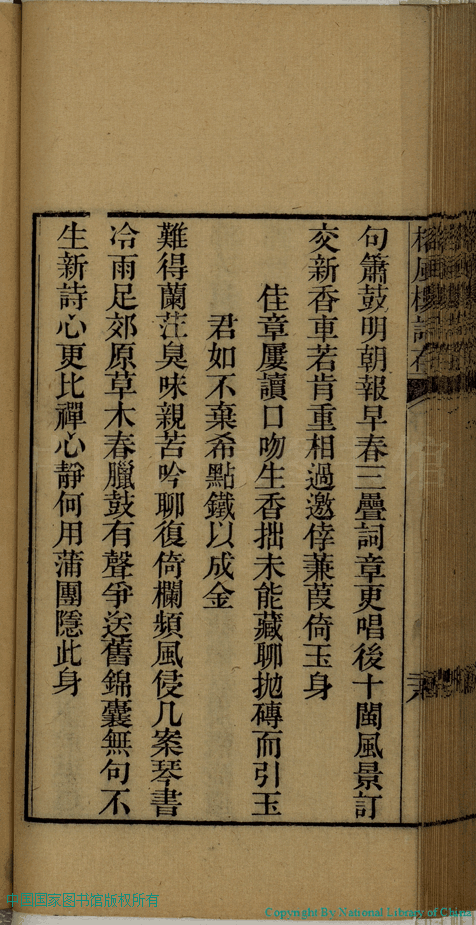 句簫鼓明朝報早春三疊詞章更唱後十閩風景訂
交新香車若肯重相過邀倖蒹葭倚玉身
佳章屢讀口吻生香拙未能藏聊拋磚而引玉
君如不棄希點鐵以成金
難得蘭茳臭味親苦吟聊復倚欄頻風侵几案琴書
冷雨足郊原草木春臘鼓有聲爭送舊錦囊無句不
生新詩心更比禪心靜何用蒲團隱此身
中国国家图书馆版权所有
Copyright By National Library of China